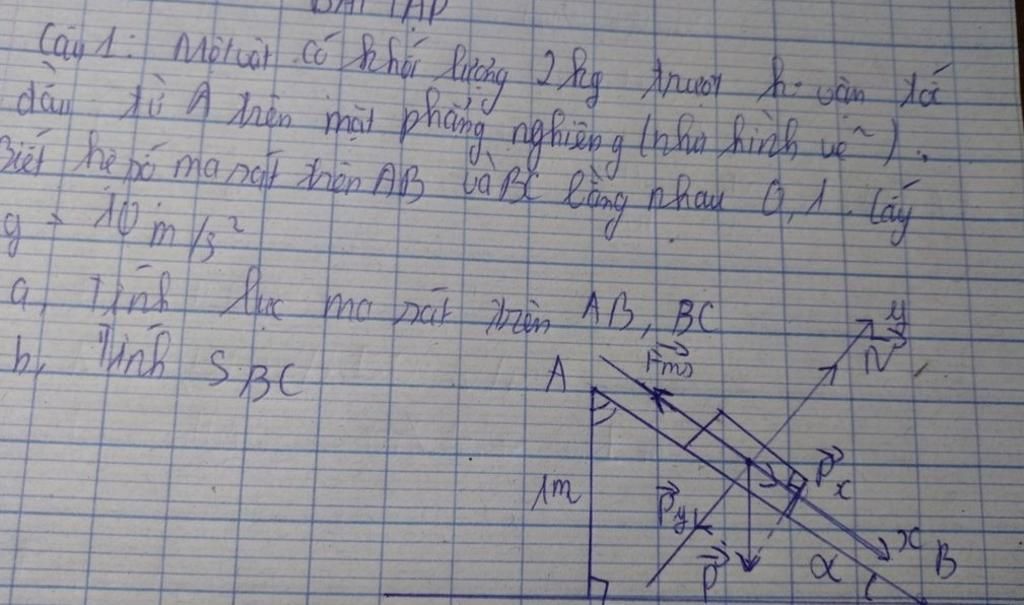 BÀI TẬP
Câu 1: Một vật có khối lượng 2kg trượt k. vận tố
đầu từ A trên mặt phẳng nghiêng (như hình vẽ).
Biết hệ số ma sát trên AB và BC bằng nhau 0,1. Lấy
g = 10 m/s²
a, Tính lực ma sát trên AB, BC
b, Tính S BC
A
Fms
y
N
1m
Py
P
Px
x
α
B